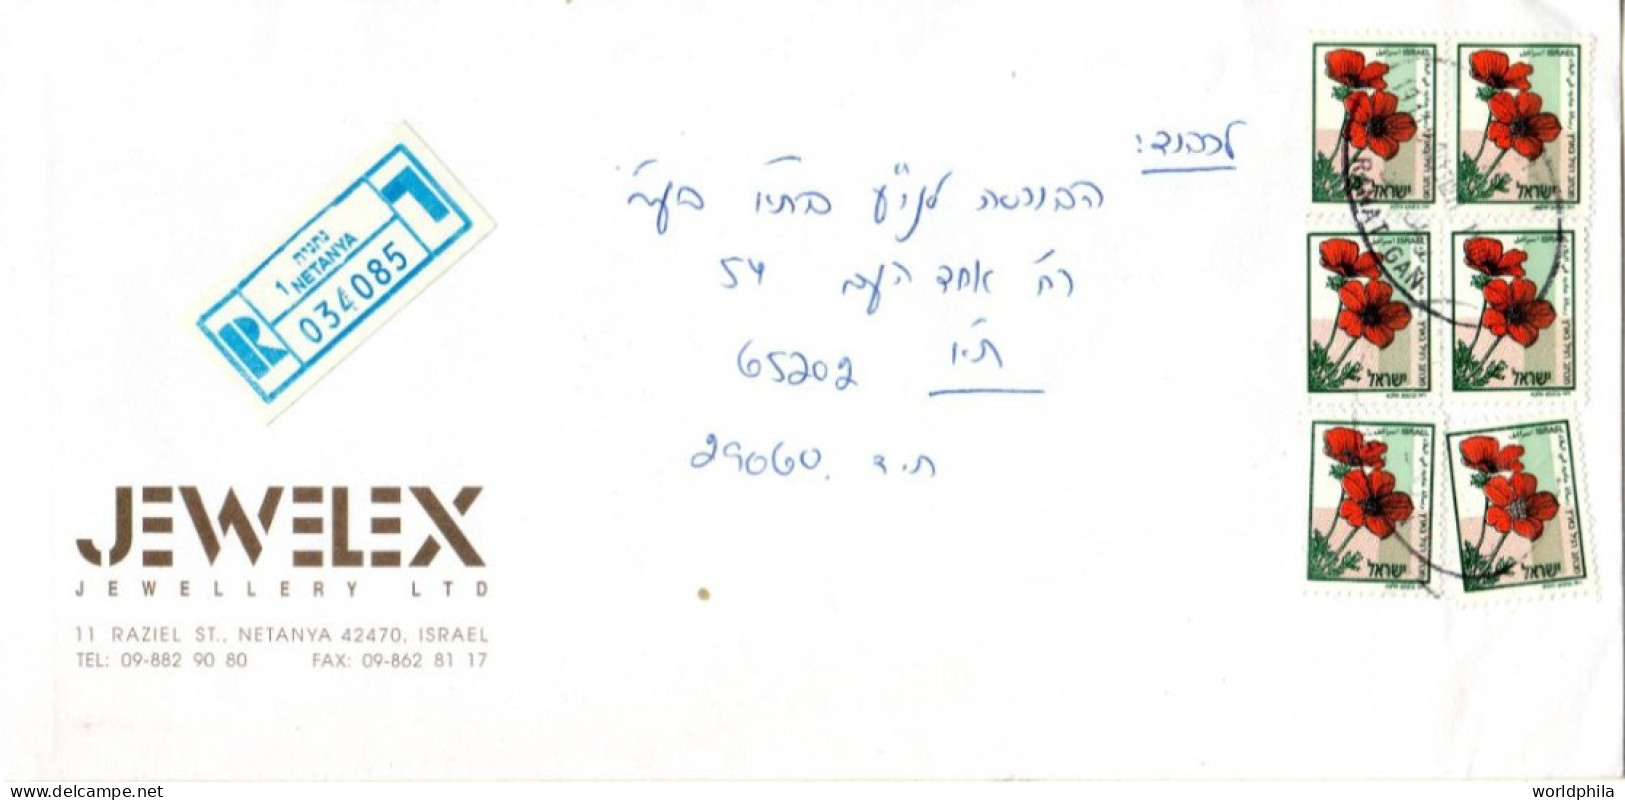 נתניה
1 NETANYA
R
034085
ל
JEWELEX
JEWELLERY LTD
11 RAZIEL ST., NETANYA 42470, ISRAEL
TEL: 09-882 90 80 FAX: 09-862 81 17
לכבוד:
הבורסה לני"ע בת"א בע"מ
רח' אחד העם 54
ת"א 65202
ת.ד. 29060
اسرائيل ISRAEL
ישראל
اسرائيل ISRAEL
ישראל
اسرائيل ISRAEL
ישראל
اسرائيل ISRAEL
ישראל
اسرائيل ISRAEL
ישראל
اسرائيل ISRAEL
ישראל
RAMAT GAN
delcampe.net
worldphila